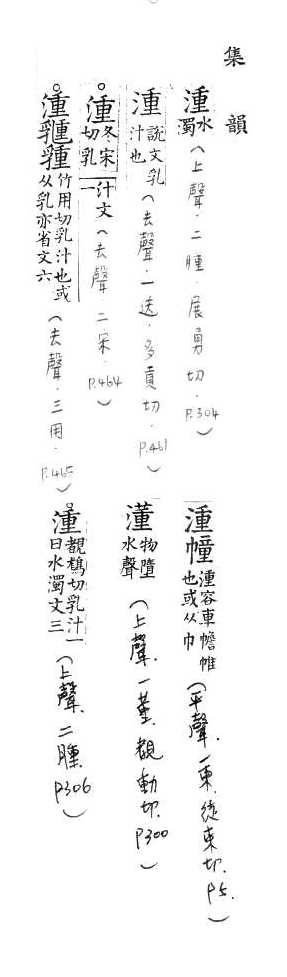 集韻
湩 水濁（上聲．二腫．展勇切．P.304）
湩 說文乳汁也（去聲．一送．多貢切．P.461）
湩 冬宋切乳汁文一（去聲．二宋．P.464）
湩𤚏𤚏 竹用切乳汁也或从乳亦省文六（去聲．三用．P.465）
湩幢 湩容車幨帷也或从巾（平聲．一東．徒東切．P5.）
湩 物墮水聲（上聲．一董．覩動切．P300）
湩 覩鵚切乳汁一曰水濁文三（上聲．二腫．P306）